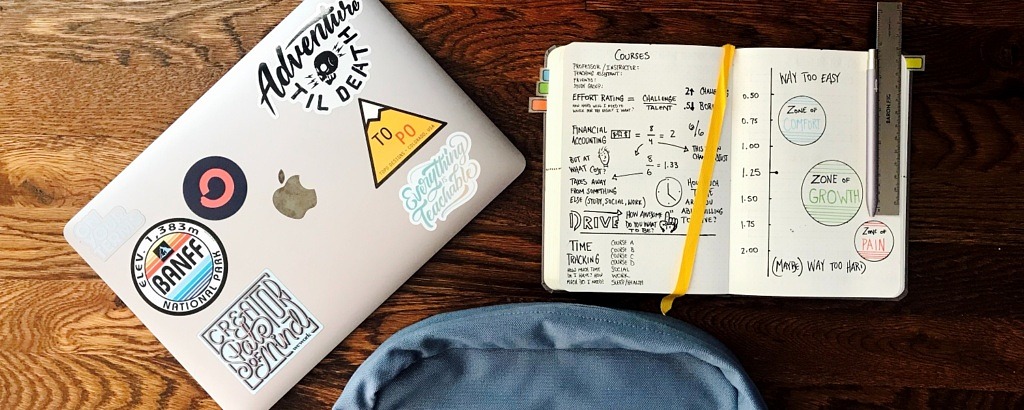 Adventure
'TIL DEATH
TO PO
Everything
Teachable
ELEV. 1,383m
BANFF
NATIONAL PARK
CREATOR
State
of Mind
COURSES
PROFESSOR / INSTRUCTOR:
TEACHING ASSISTANT:
FRIENDS:
STUDY GROUP:
EFFORT RATING = CHALLENGE
TALENT
FINANCIAL
ACCOUNTING
= 8/4 = 2
6/6
BUT AT
WHAT COST?
8/6 = 1.33
TAKES AWAY
FROM SOMETHING
ELSE (STUDY, SOCIAL, WORK)
DRIVE
HOW AWESOME
DO YOU WANT
TO BE?
TIME
TRACKING
HOW MUCH TIME
DO I HAVE? HOW
MUCH DO I NEED?
COURSE A
COURSE B
COURSE C
COURSE D
SOCIAL
WORK
SLEEP/HEALTH
WAY TOO EASY
0.50
0.75
1.00
1.25
1.50
1.75
2.00
ZONE OF
COMFORT
ZONE OF
GROWTH
ZONE OF
PAIN
(MAYBE) WAY TOO HARD